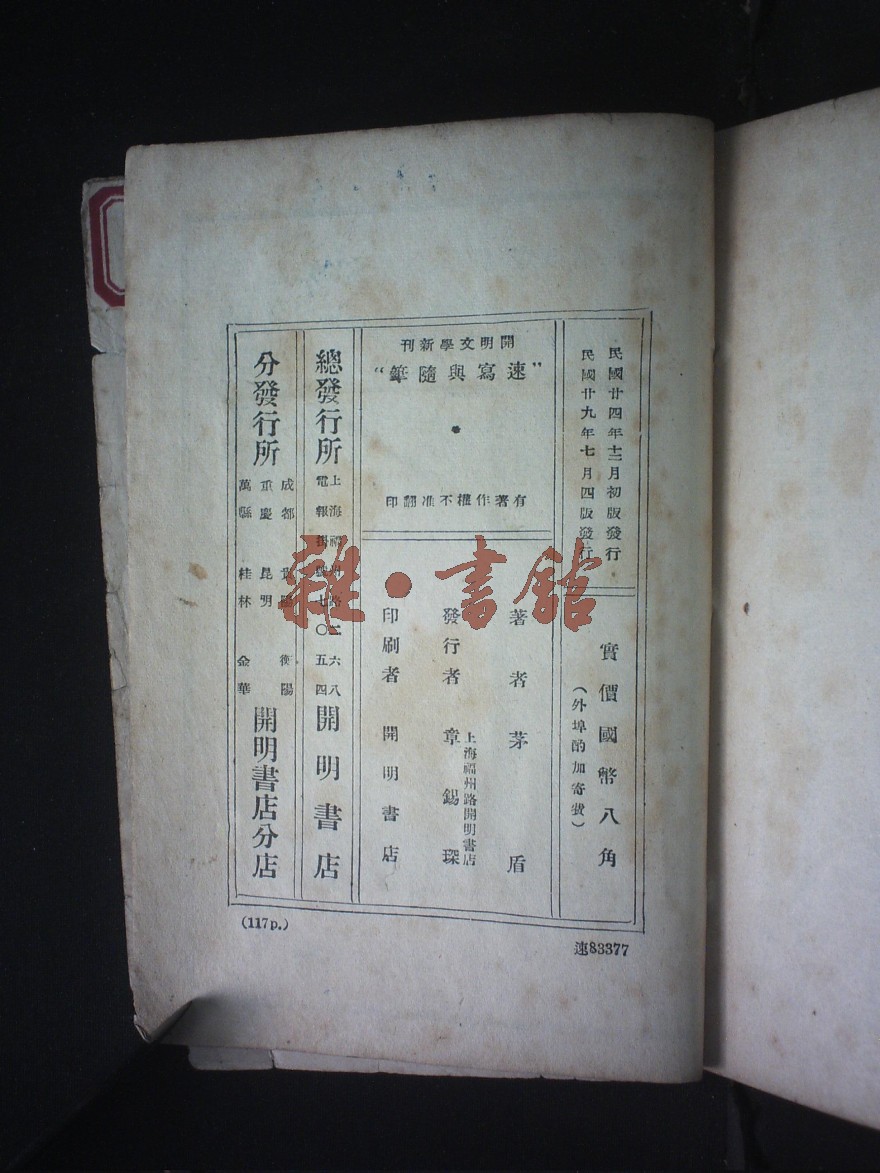 民國廿四年十二月初版發行
民國廿九年七月四版發行
實價國幣八角
(外埠酌加寄費)
開明文學新刊
“速寫與隨筆”
有著作權不准翻印
著者 茅盾
發行者 章錫琛
上海福州路開明書店
印刷者 開明書店
總發行所
上海福州路二六八
電報掛號七〇五四
開明書店
分發行所
成都 貴陽 衡陽
重慶 昆明
萬縣 桂林 金華
開明書店分店
(117p.)
速83377
雜·書館